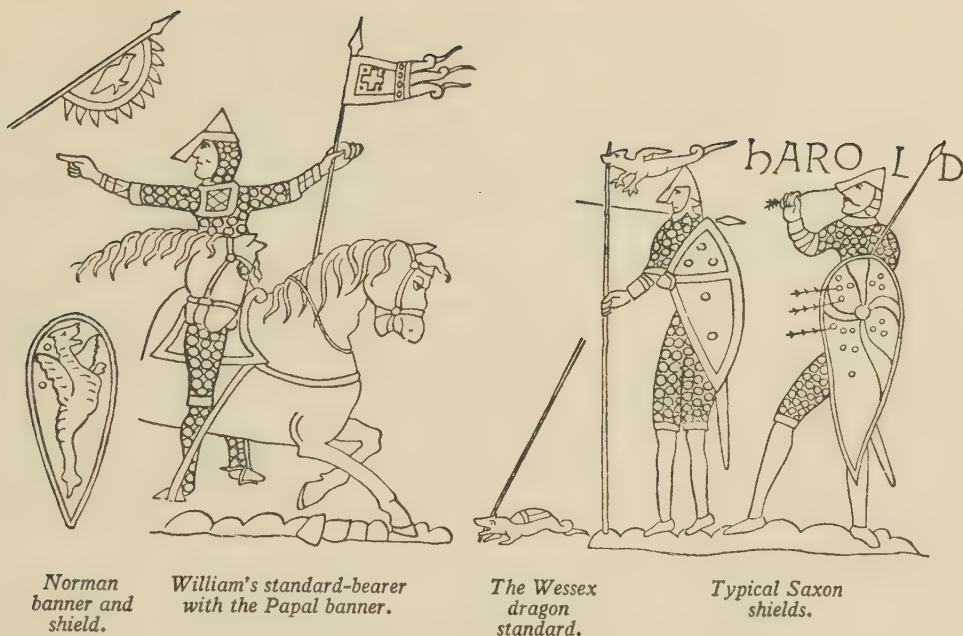 hARO L D
Norman
banner and
shield.
William's standard-bearer
with the Papal banner.
The Wessex
dragon
standard.
Typical Saxon
shields.